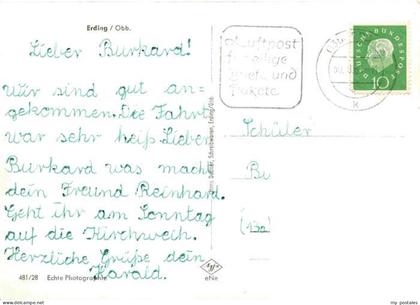 Erding / Obb.
Lieber Burkard!
Wir sind gut an-
gekommen. Die Fahrt
war sehr heiß. Lieber
Burkard was macht
dein Freund Reinhard.
Geht ihr am Sonntag
auf die Kirchweih.
Herzliche Grüße dein
Harald.
481/28 Echte Photographie
Luftpost
für eilige
Brief und
Pakete
DEUTSCHE BUNDESPOST
10
Schüler
Bu
(13a)
Agfa
eNe
my postales